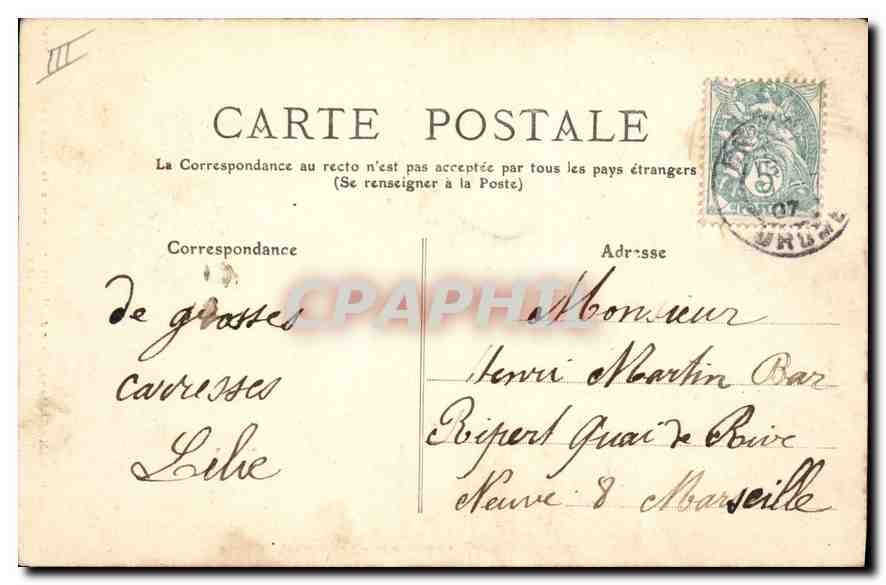 III
CARTE POSTALE
La Correspondance au recto n'est pas acceptée par tous les pays étrangers
(Se renseigner à la Poste)
5
07
DROME
Correspondance
de grosses
carresses
Lilie
Adresse
Monsieur
Henri Martin Bar
Ripert Quai de Rive
Neuve 8 Marseille
CPAPHIL